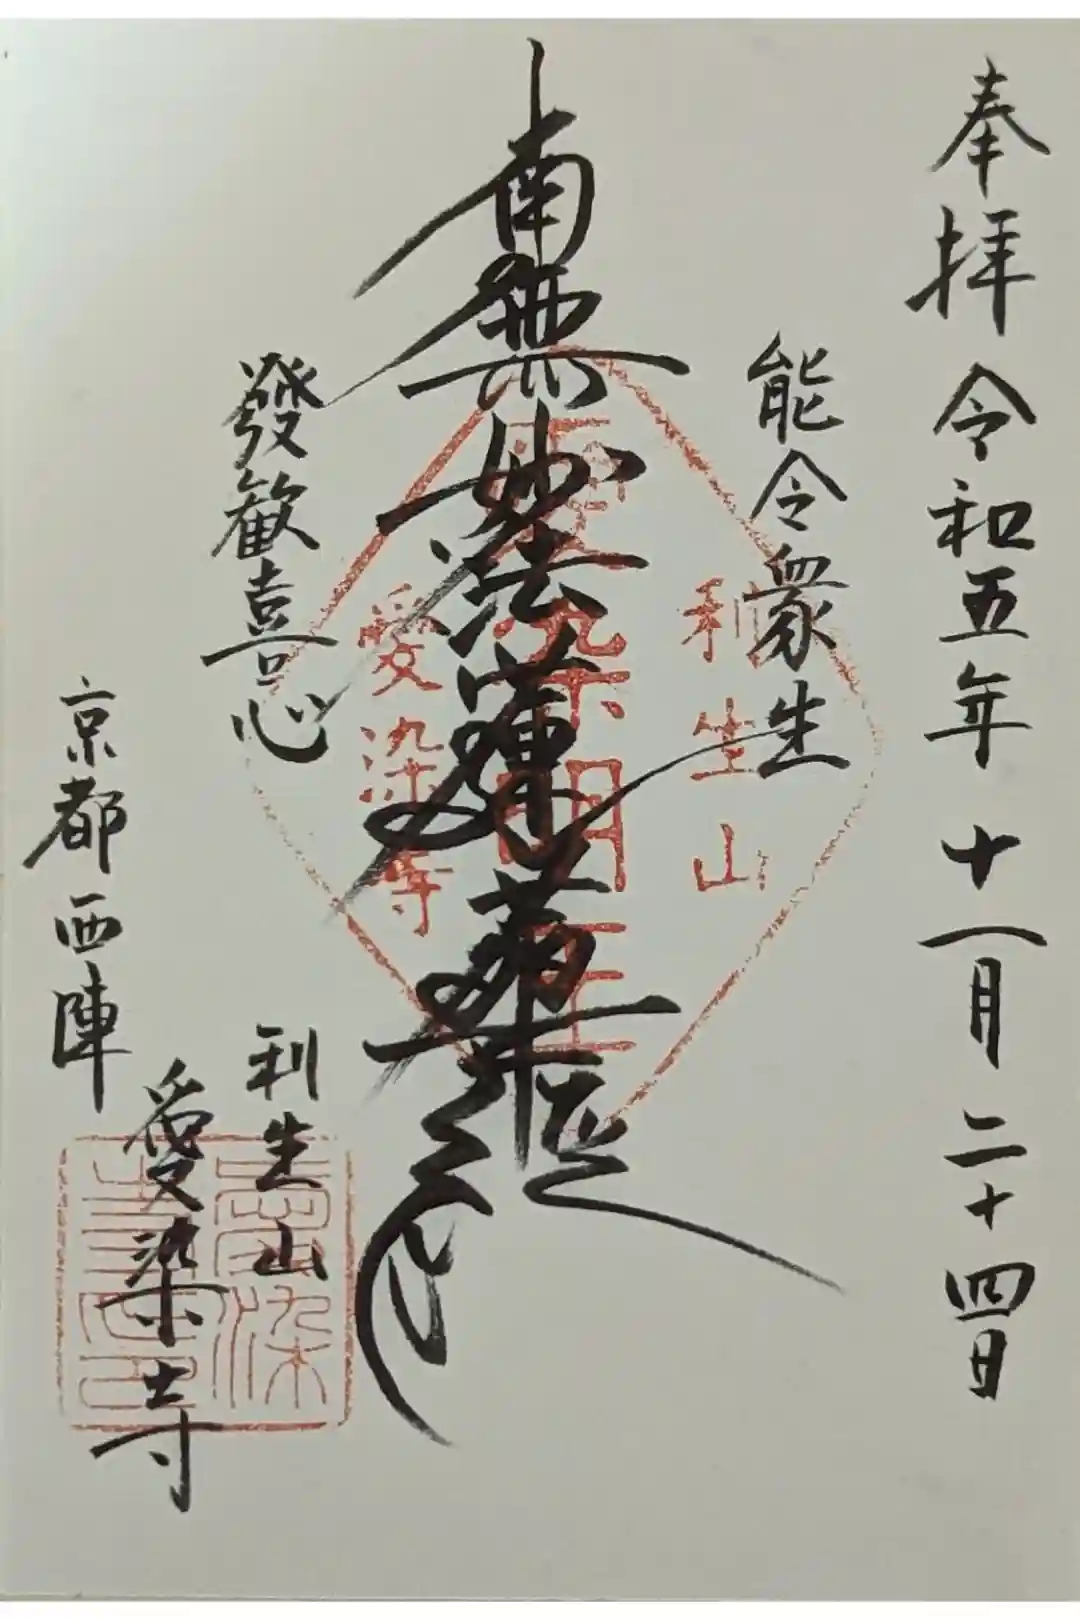 奉拝 令和五年 十一月 二十四日
能令衆生
南無妙法蓮華經
發歓喜心
利生山
愛染寺
京都西陣
利生山
愛染明王
愛染寺
愛染寺印